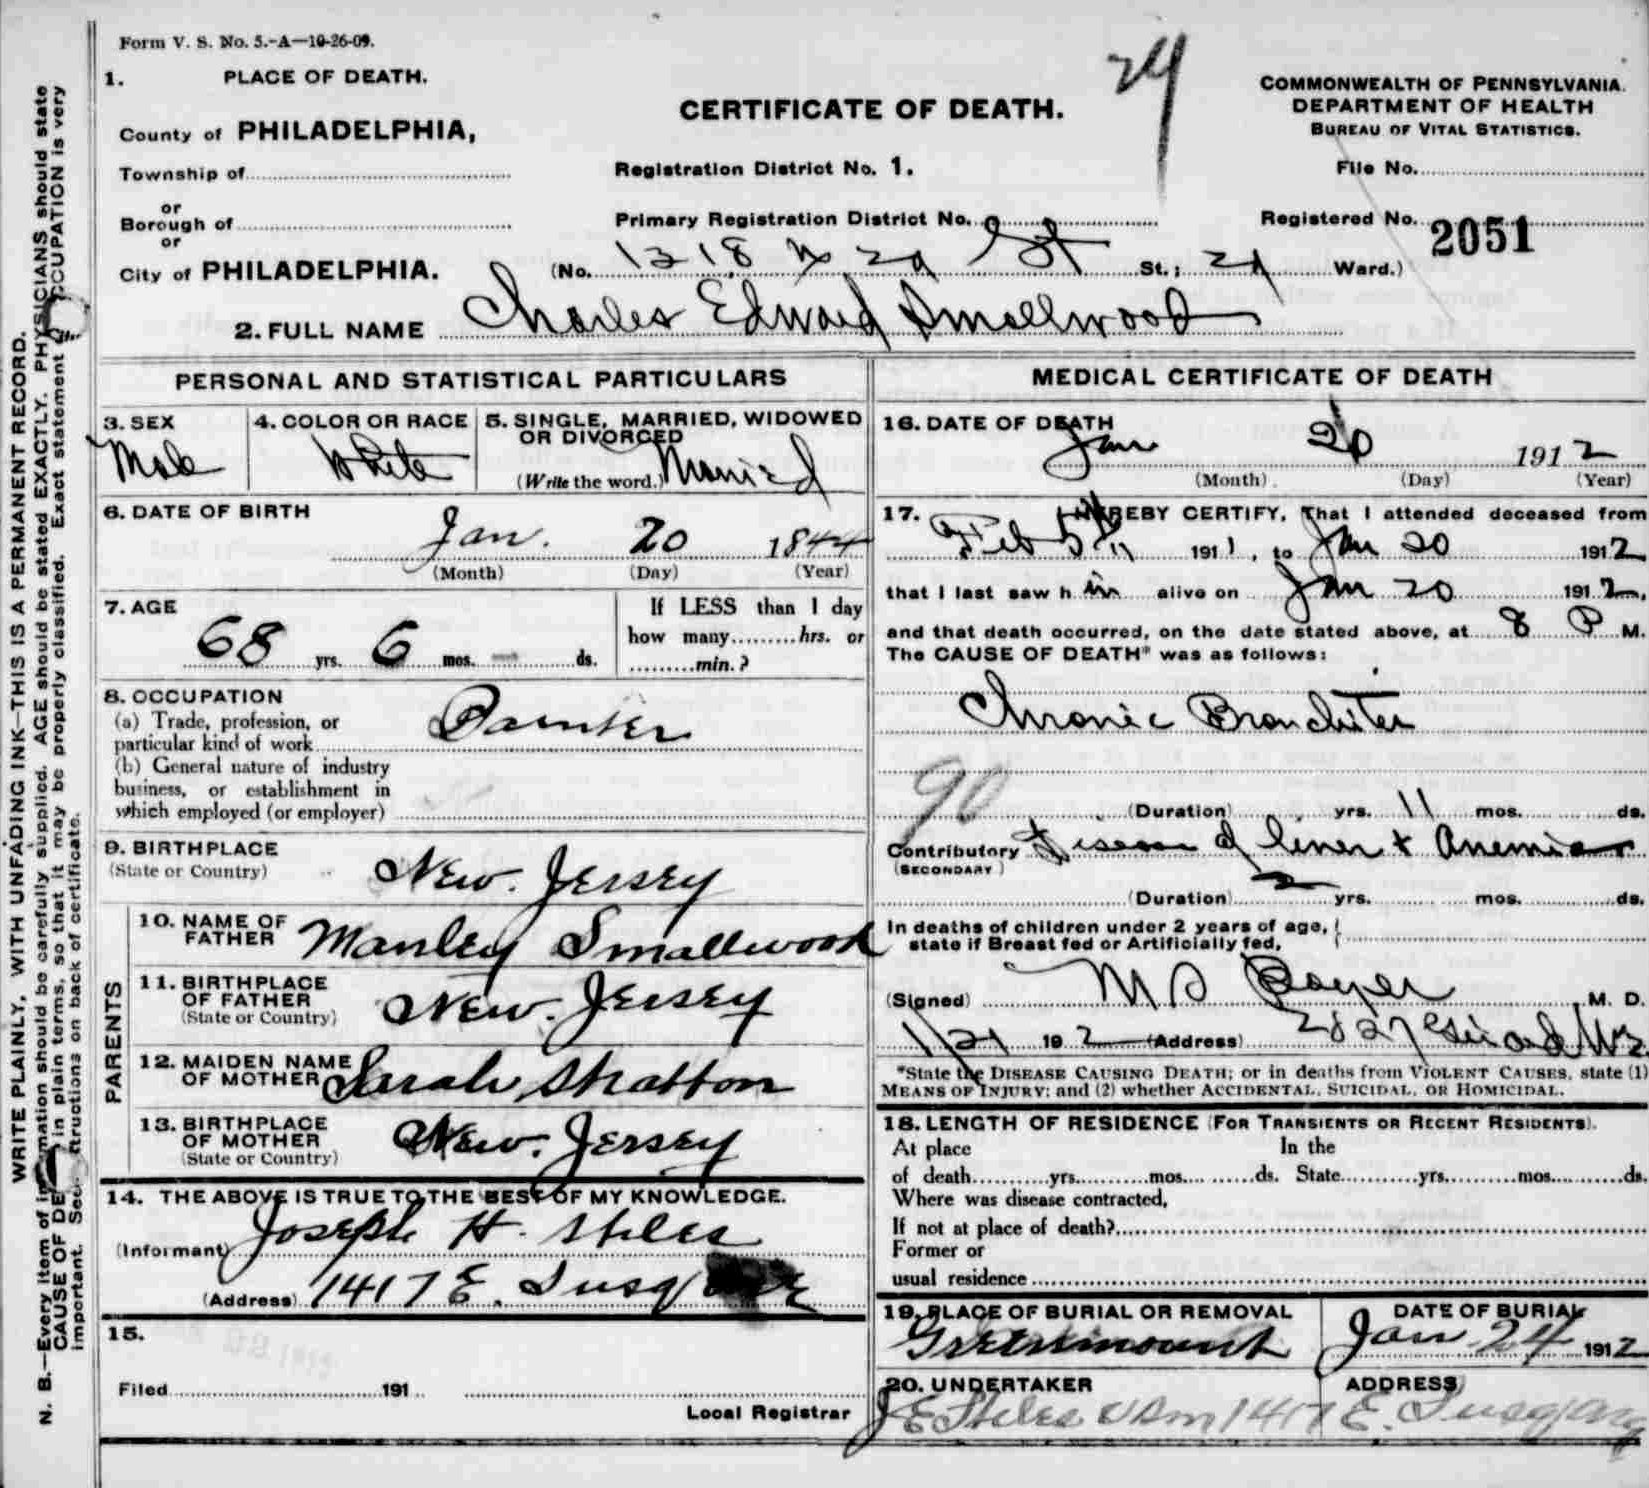 Form V. S. No. 5.-A—10-26-09.
1. PLACE OF DEATH.
County of PHILADELPHIA,
Township of
or
Borough of
or
City of PHILADELPHIA.
CERTIFICATE OF DEATH.
24
COMMONWEALTH OF PENNSYLVANIA.
DEPARTMENT OF HEALTH
BUREAU OF VITAL STATISTICS.
Registration District No. 1.
File No.
Primary Registration District No.
Registered No. 2051
(No. 1218 N 29 St St.; 29 Ward.)
2. FULL NAME Charles Edward Smallwood
PERSONAL AND STATISTICAL PARTICULARS
3. SEX
Male
4. COLOR OR RACE
White
5. SINGLE, MARRIED, WIDOWED
OR DIVORCED
(Write the word.) Married
6. DATE OF BIRTH
Jan. 20 1844
(Month) (Day) (Year)
7. AGE
68 yrs. 6 mos. — ds.
If LESS than 1 day
how many hrs. or
min.?
8. OCCUPATION
(a) Trade, profession, or
particular kind of work Painter
(b) General nature of industry
business, or establishment in
which employed (or employer)
9. BIRTHPLACE
(State or Country)
New. Jersey
PARENTS
10. NAME OF
FATHER Manley Smallwood
11. BIRTHPLACE
OF FATHER
(State or Country) New. Jersey
12. MAIDEN NAME
OF MOTHER Sarah Stratton
13. BIRTHPLACE
OF MOTHER
(State or Country) New. Jersey
14. THE ABOVE IS TRUE TO THE BEST OF MY KNOWLEDGE.
(Informant) Joseph H. Stiles
(Address) 1417 E. Susq
15.
Filed 191
Local Registrar
MEDICAL CERTIFICATE OF DEATH
16. DATE OF DEATH
Jan 20 1912
(Month) (Day) (Year)
17. I HEREBY CERTIFY, That I attended deceased from
Feb 5 1911, to Jan 20 1912
that I last saw h im alive on Jan 20 1912,
and that death occurred, on the date stated above, at 8 P M.
The CAUSE OF DEATH* was as follows:
Chronic Bronchitis
90
(Duration) yrs. 11 mos. ds.
Contributory Disease of liver + Anemia
(SECONDARY)
(Duration) 2 yrs. mos. ds.
In deaths of children under 2 years of age,
state if Breast fed or Artificially fed,
(Signed) M D Boyer M. D.
1/21 1912 (Address) 2827 Girard Ave
*State the DISEASE CAUSING DEATH; or in deaths from VIOLENT CAUSES, state (1)
MEANS OF INJURY; and (2) whether ACCIDENTAL, SUICIDAL, OR HOMICIDAL.
18. LENGTH OF RESIDENCE (FOR TRANSIENTS OR RECENT RESIDENTS).
At place In the
of death yrs. mos. ds. State yrs. mos. ds.
Where was disease contracted,
If not at place of death?
Former or
usual residence
19. PLACE OF BURIAL OR REMOVAL
Greenmount
DATE OF BURIAL
Jan 24 1912
20. UNDERTAKER
ADDRESS
J E Stiles & Son 1417 E. Susq Ave
WRITE PLAINLY, WITH UNFADING INK—THIS IS A PERMANENT RECORD.
N. B.—Every item of information should be carefully supplied. AGE should be stated EXACTLY. PHYSICIANS should state
CAUSE OF DE in plain terms, so that it may be properly classified. Exact statement OCCUPATION is very
important. See instructions on back of certificate.